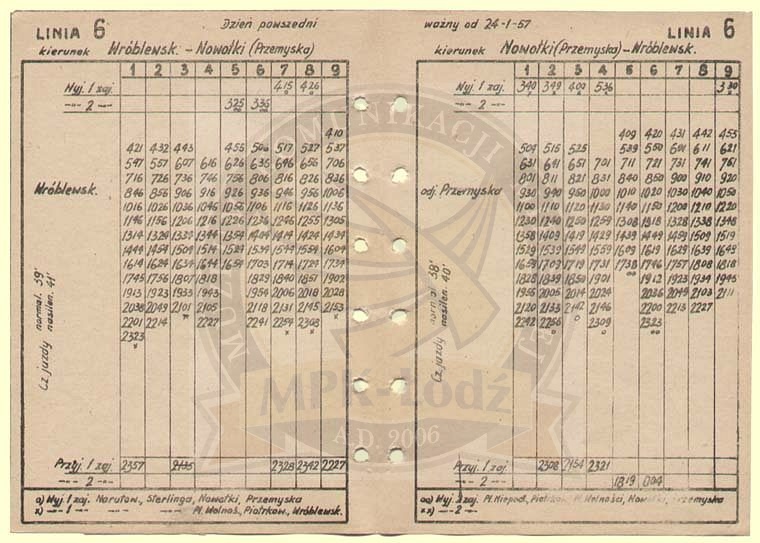 LINIA 6 Dzień powszedni
kierunek Wróblewsk. - Nowotki (Przemyska)
1 2 3 4 5 6 7 8 9
Wyj. 1 zaj. 415 426
-"- 2 325 335
410
421 432 443 455 506 517 527 537
547 557 607 616 626 636 646 656 706
Wróblewsk. 716 726 736 746 756 806 816 826 836
846 856 906 916 926 936 946 956 1006
1016 1026 1036 1046 1056 1106 1116 1126 1136
1146 1156 1206 1216 1226 1236 1246 1255 1305
1314 1324 1334 1344 1354 1404 1414 1424 1434
1444 1454 1504 1514 1524 1534 1544 1554 1604
1614 1624 1634 1644 1654 1703 1714 1724 1734
1745 1756 1807 1818 1829 1840 1851 1902
1913 1923 1933 1943 1954 2006 2018 2028
2038 2049 2101 2105 2118 2131 2145 2153
2201 2214 2227 2241 2254 2308
2323
Cz. jazdy normal. 39'
nasilen. 41'
Przyj. 1 zaj. 2357 2135 2328 2342 2227
-"- 2
o) Wyj. 1 zaj. Narutow., Sterlinga, Nowotki, Przemyska
x) -"- 1 -"- -"- Pl. Wolnoś., Piotrkow., Wróblewsk.
ważny od 24-1-57 LINIA 6
kierunek Nowotki (Przemyska) - Wróblewsk.
1 2 3 4 5 6 7 8 9
Wyj. 1 zaj. 340 349 400 536 330
-"- 2
409 420 431 442 453
504 515 525 539 550 601 611 621
631 641 651 701 711 721 731 741 751
801 811 821 831 840 850 900 910 920
odj. Przemyska 930 940 950 1000 1010 1020 1030 1040 1050
1100 1110 1120 1130 1140 1150 1200 1210 1220
1230 1240 1250 1259 1308 1318 1328 1338 1348
1358 1409 1419 1429 1439 1449 1459 1509 1519
1529 1539 1549 1559 1609 1619 1629 1639 1649
1659 1709 1719 1731 1738 1746 1757 1808 1818
1828 1839 1850 1901 1912 1923 1934 1945
1956 2005 2014 2024 2036 2049 2103 2111
2120 2133 2142 2146 2200 2213 2227
2242 2256 2309 2323
Cz. jazdy normal. 38'
nasilen. 40'
Przyj. 1 zaj. 2308 2154 2321
-"- 2 1819 004
oo) Wyj. 2 zaj. Pl. Niepod., Piotrkow. Pl. Wolności, Nowotki, Przemyska
xx) -"- 2 -"-
MUZEUM KOMUNIKACJI
MPK-Łódź
A.D. 2006